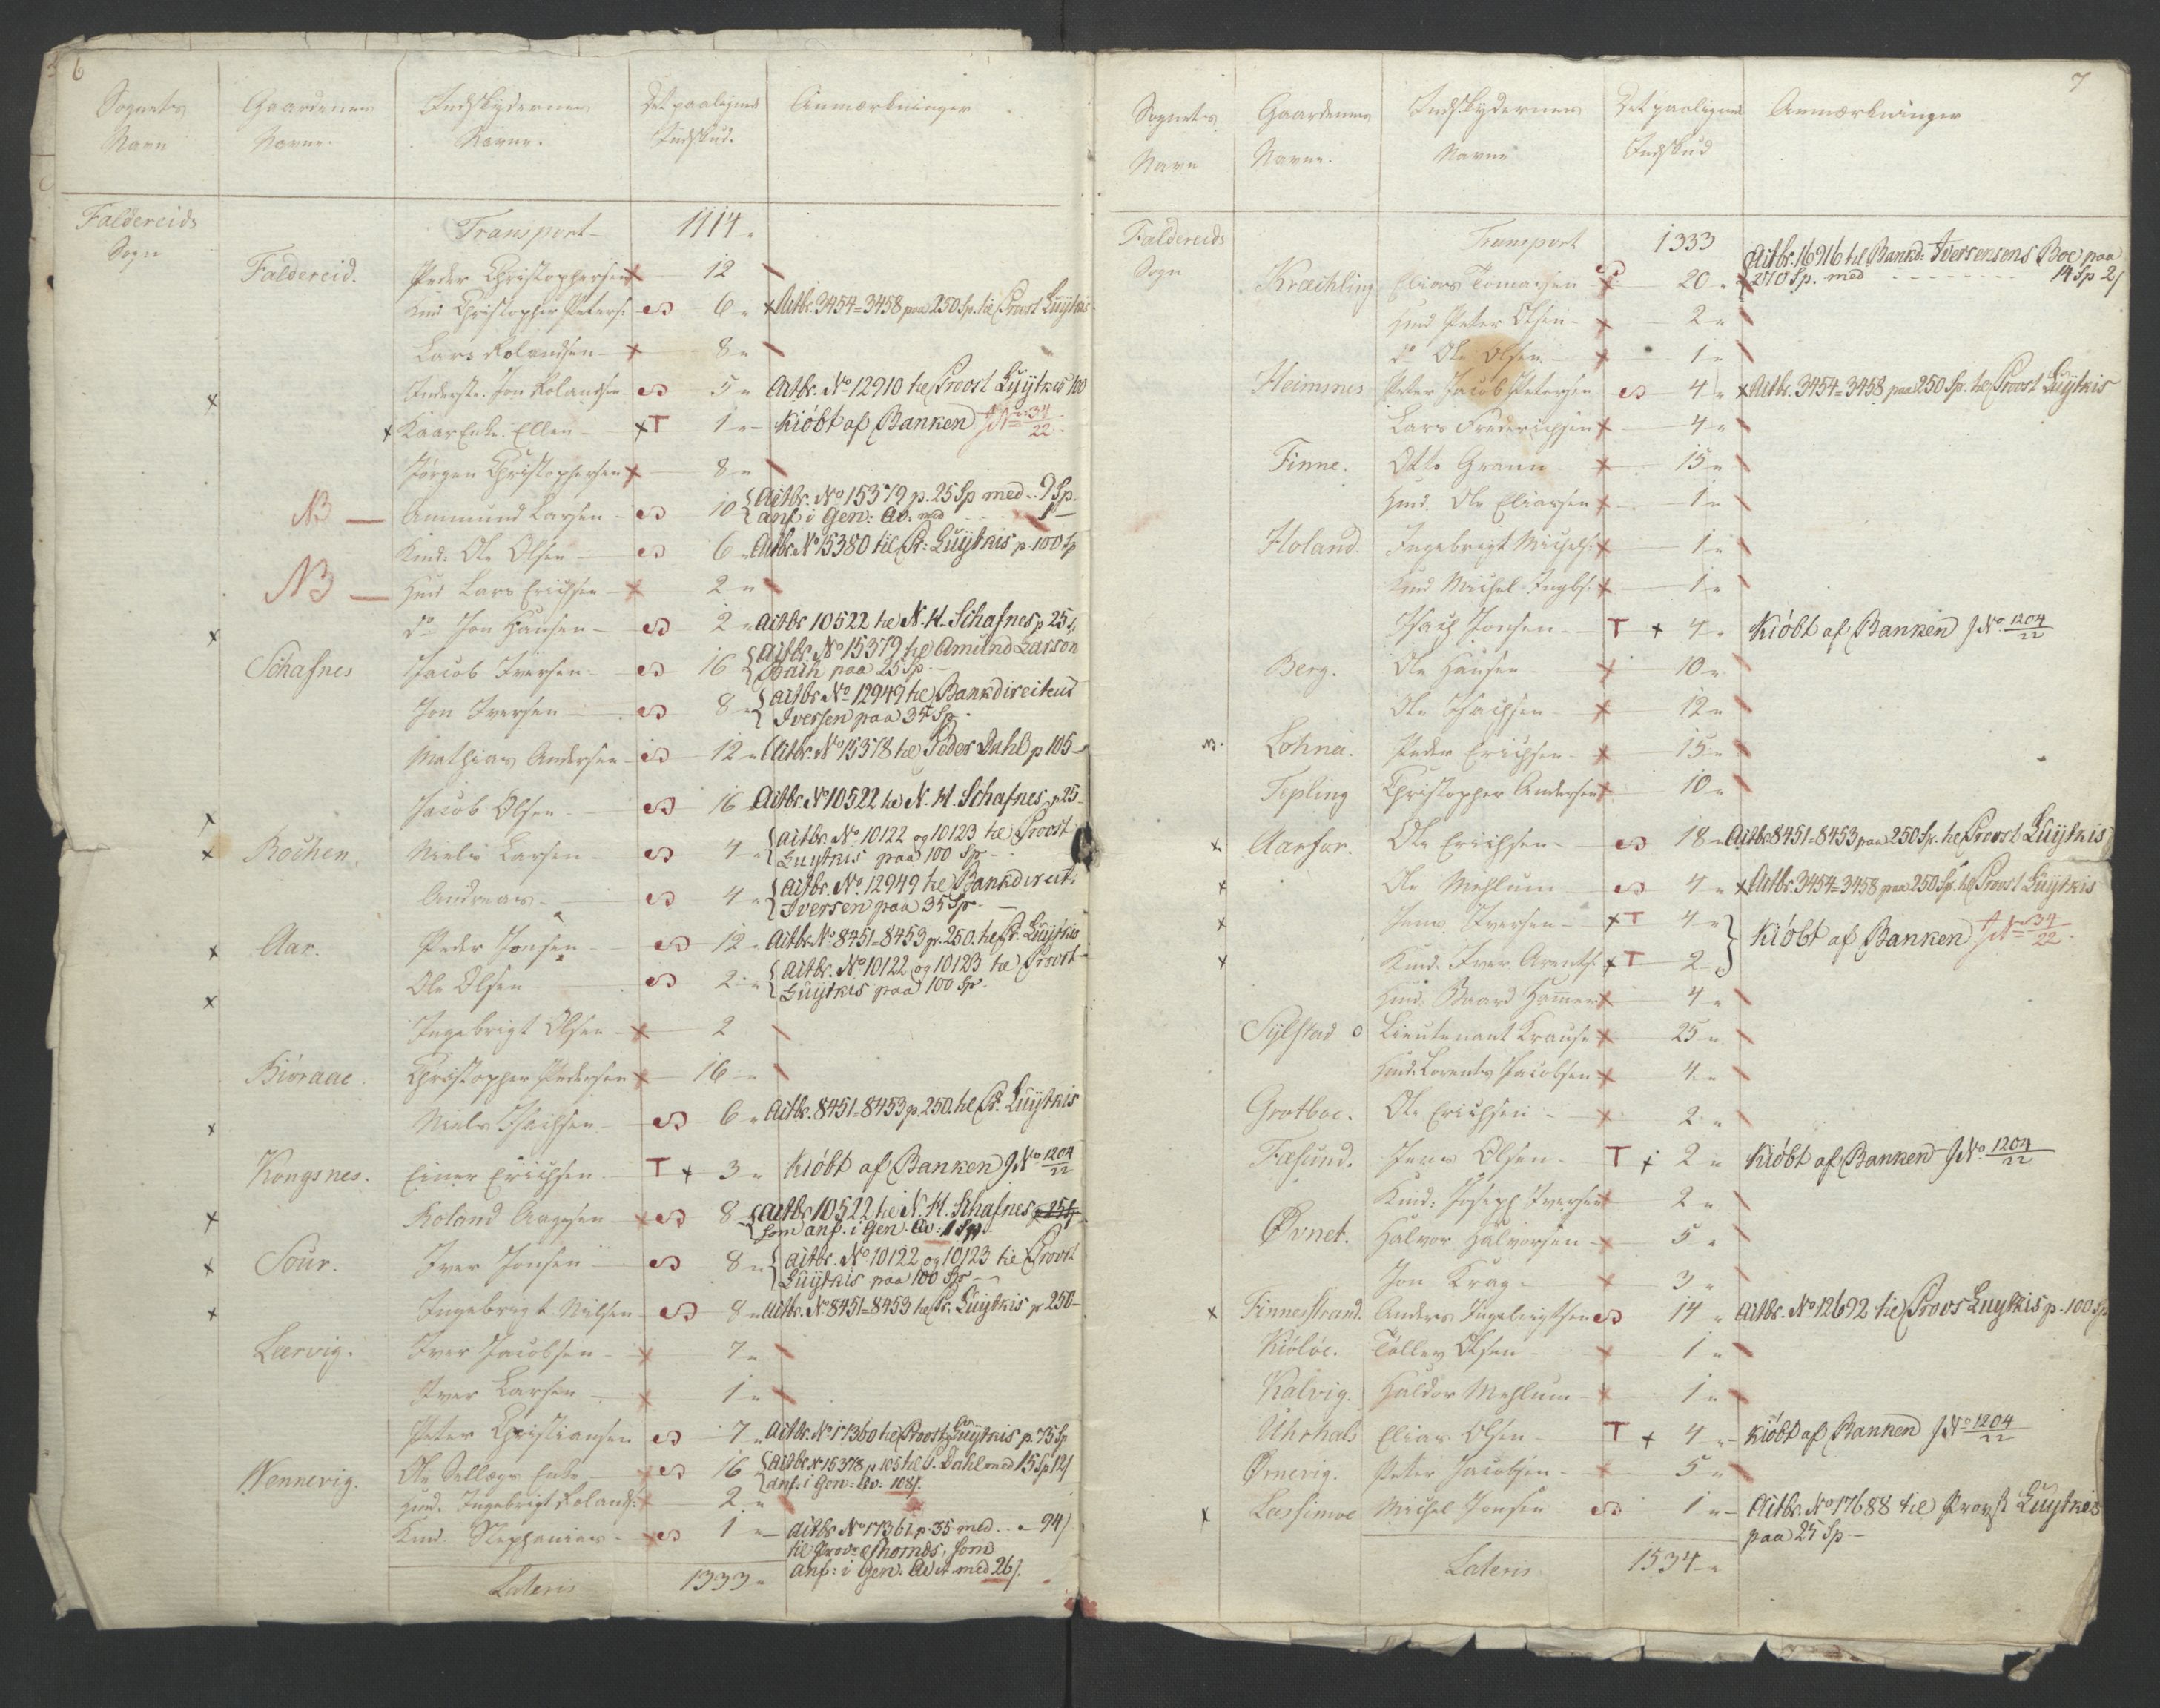 6
Sognets Navn
Gaardenes Navne.
Indskydernes Navne.
Det paalignede Indskud.
Anmærkninger
Faldereids Sogn
Transport 1114 "
Faldereid. Peder Christophersen x 12
Kud Christopher Peters: 6 " x Actbr. 3454=3458 paa 250 Sp. til Provst Luytkis
Lars Rolandsen x 8 "
x Inderste. Jon Rolandsen 5 " Actbr. No 12910 til Provst Luytkis 100
x Kaar Enke. Ellen xT 1 " Kiöbt af Banken J No 34/22
Jørgen Christophersen x 8 "
NB Ammund Larsen 10 { Actbr. No 15379 p. 25 Sp med .. 9 Sp.
anf. i Gen: Qv. med 1
Kud: Ole Olsen 6 " Actbr. No 15380 til Pr: Luytkis p. 100 Sp
NB Hmd Lars Erichsen x 2 "
x do Jon Hansen 2 " Actbr 10522 til N. H. Schafnes p 25
Schafnes Jacob Iversen 16 { Actbr. No 15379 til Amund Larson
paa 25 Sp.
Jon Iversen 8 " { Actbr No 12949 til Bankdirecteur
Iversen paa 35 Sp.
Mathias Andersen 12 " Actbr. No 15378 til Peder Dahl p 105
x Jacob Olsen 16 Actbr. No 10522 til N. H. Schafnes p 25
x Kochen. Niels Larsen 4 " { Actbr. No 10122 og 10123 til Provst
Luytkis paa 100 Sp
Andreas 4 " { Actbr. No 12949 til Bankdirect:
Iversen paa 35 Sp.
x Aar. Peder Jonsen 12 " Actbr. No 8451=8453 p. 250. til Pr. Luytkis
x Ole Olsen 2 " { Actbr. No 10122 og 10123 til Provst
Luytkis paa 100 Sp.
Ingebrigt Olsen x 2
Kióraae. Christopher Pedersen x 16 "
x Niels Isachsen 6 " Actbr. 8451=8453 p. 250. til Pr. Luytkis
Kongsnes. Einer Erichsen T x 3 " Kiöbt af Banken J No 1204/22
x Roland Aagesen x 8 { Actbr 10522 til N. H. Schafnes p 25 Sp
som anf. i Gen. Qv: 1 Sp.
x Sour. Iver Jonsen 8 " { Actbr. No 10122 og 10123 til Provst
Luytkis paa 100 Sp
x Ingebrigt Nilsen 8 " Actbr. No 8451=8453 til Pr. Luytkis p 250
Leervig. Iver Jacobsen x 7 "
Iver Larsen x 1 "
Peter Christiansen 7 " Actbr. No 17360 til Provst Luytkis p. 75 Sp
Wennevig. Ole Enke x 16 { Actbr No 15378 p. 105 til P. Dahl med 15 Sp 12
anf. i Gen: Qv: 108
Hmd. Ingebrigt Rolands: x 2 "
Kud. Stephanias x 1 " Actbr No 17361 p. 35 med .. 94
til Thomds, som
anf: i Gen. Qvit med 26
Lateris 1333 "
7
Sognets Navn
Gaardenes Navne.
Indskydernes Navne
Det paalignede Indskud
Anmærkninger
Faldereids Sogn
Transport 1333
Kræchling Elias Tomassen x 20 " Actbr. 16916 til Bankd: Iversensens Boe paa
270 Sp. med 14 Sp 2
Hmd Peter Olsen x 2 "
do Ole Olsen x 1 "
Heimnes Peter Jacob Petersen 4 " x Actbr. 3454=3458 paa 250 Sp. til Provst Luytkis
Lars Friderichsen x 4 "
Finne. Otto Grann x 15 "
Hmd. Ole Eliassen x 1 "
Holand. Ingebrigt Michels: x 1 "
Kud Michel Ingbs: x 1 "
Isach Jonsen T x 4 " Kiöbt af Banken J No 1204/22
Berg. Ole Hansen x 10 "
Ole Isachsen x 12 "
Lohnei. Peder Erichsen x 15 "
Tepling Christopher Andersen x 10 "
x Aarfor. Ole Erichsen 18 " Actbr. 8451=8453 paa 250 Sp. til Provst Luytkis
x Ole Mehlum 4 " x Actbr. 3454=3458 paa 250 Sp. til Provst Luytkis
x Jens Iversen xT 4 " } Kiöbt af Banken J No 34/22
x Kud. Iver Arents: xT 2
Hmd. Baard Hammer x 4 "
Sylstad o Lieutenant Krause x 25 "
Hmd. Lorents Jacobsen x 4 "
Grotboe. Ole Erichsen x 2 "
Fæsund. Jens Olsen T x 2 " Kiöbt af Banken J No 1204/22
Kud: Joseph Iversen x 2 "
Øvnet. Halvor Halvorsen x 5 "
Jon Krag x 3 "
x Finnesstrand. Anders Ingebrigtsen 14 " Actbr. No 12692 til Provs Luytkis p. 100 Sp
Kiöloe. Tollev Olsen x 1 "
Kalvig. Haldor Mehlum x 1 "
Uhrhals Elias Olsen T x 4 " Kiöbt af Banken J No 1204/22
Ørnevig. Peter Jacobsen x 5 "
x Lassimoe Michel Jonsen 1 " Actbr. No 17688 til Provst Luytkis
paa 25 Sp
Lateris 1534 "